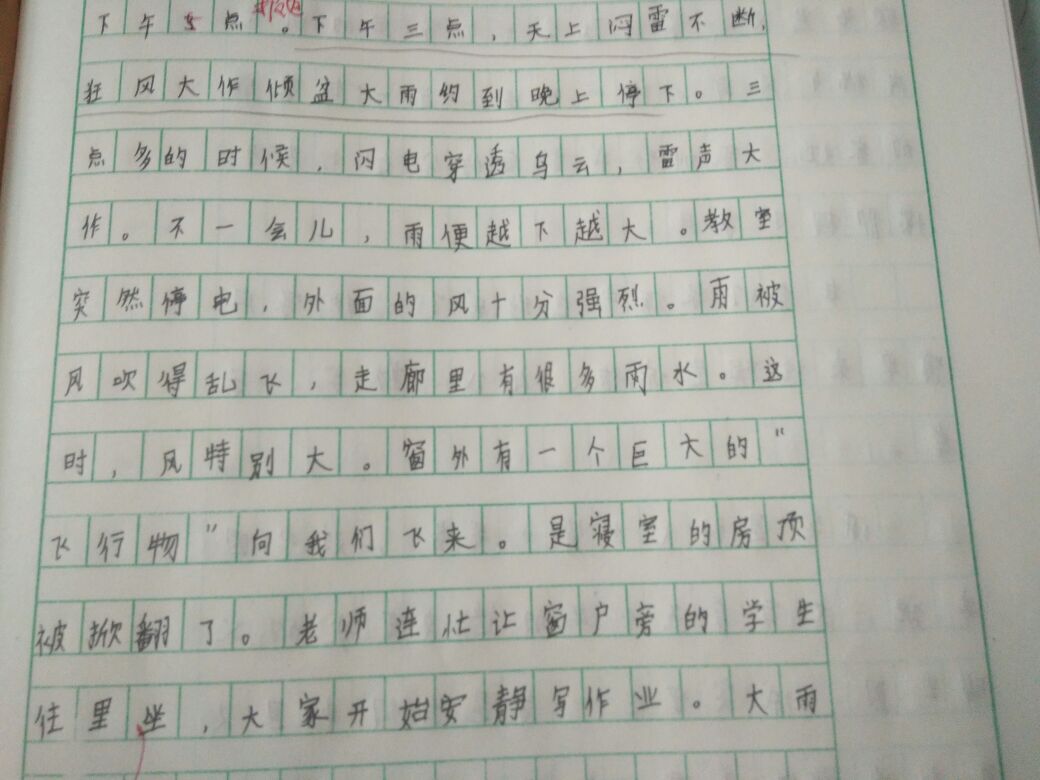 下午5点。下午三点，天上闷雷不断，
狂风大作倾盆大雨约到晚上停下。三
点多的时候，闪电穿透乌云，雷声大
作。不一会儿，雨便越下越大。教室
突然停电，外面的风十分强烈。雨被
风吹得乱飞，走廊里有很多雨水。这
时，风特别大。窗外有一个巨大的“
飞行物”向我们飞来。是寝室的房顶
被掀翻了。老师连忙让窗户旁的学生
往里坐，大家开始安静写作业。大雨